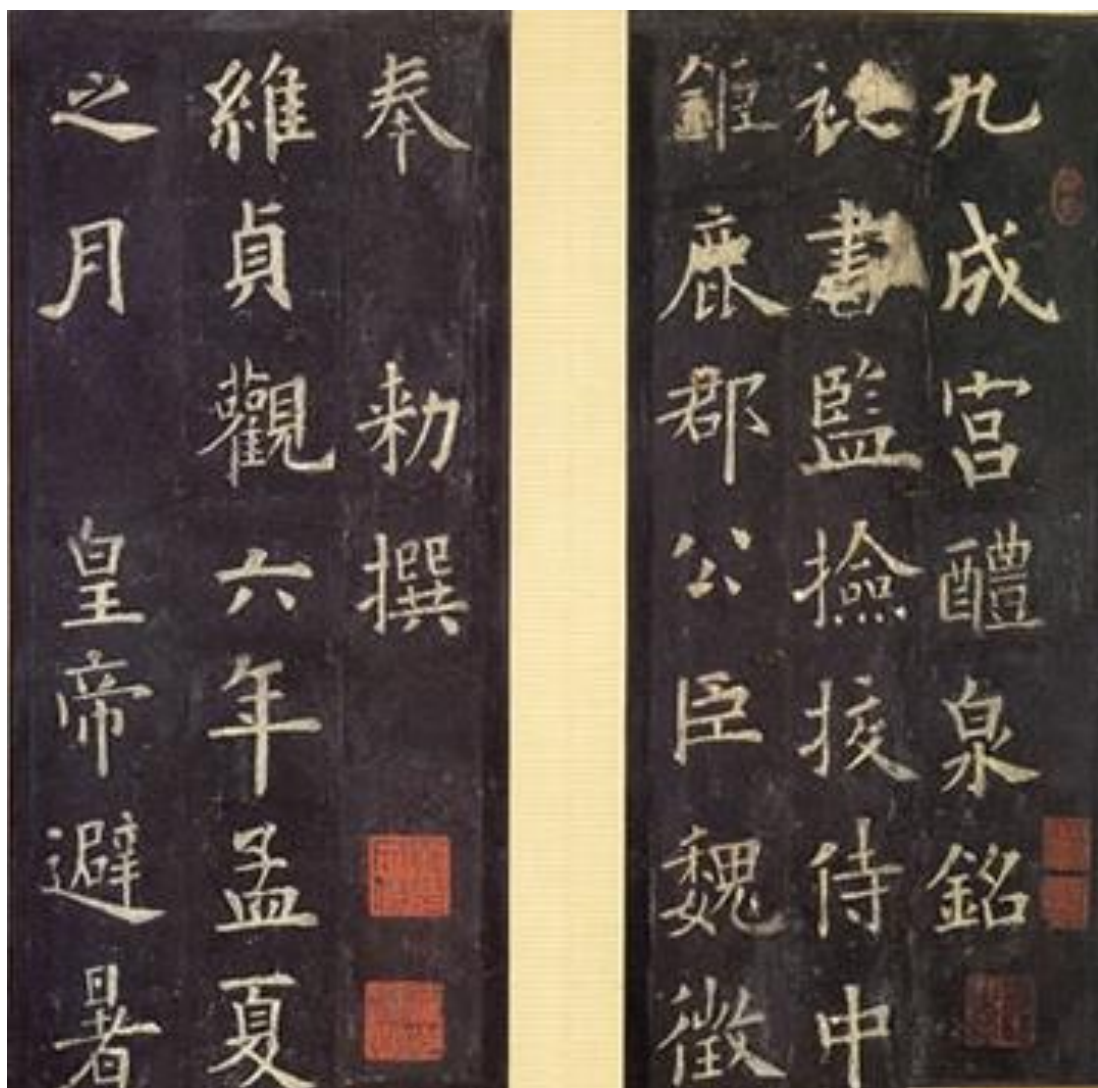 九成宮醴泉銘
祕書監撿挍侍中
鉅鹿郡公臣魏徵
奉 勑撰
維貞觀六年孟夏
之月 皇帝避暑